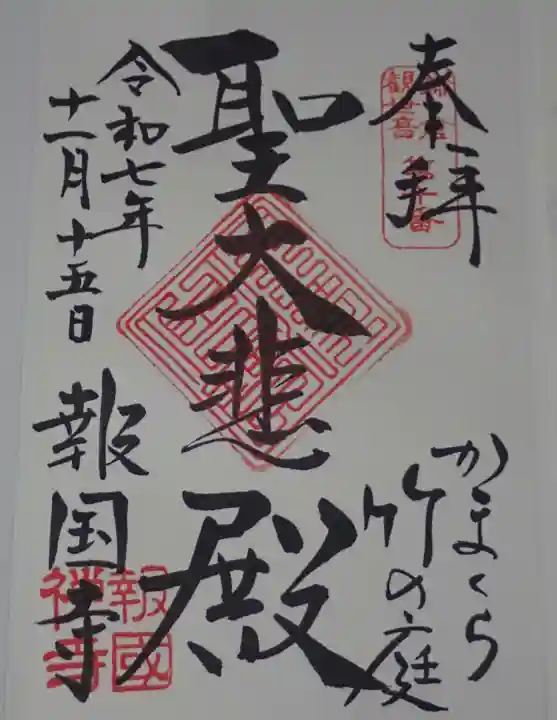 奉拝
鎌倉
観世音
第十番
かまくら
竹の庭
聖大悲殿
令和七年
十一月十五日
報国寺
報國
禅寺